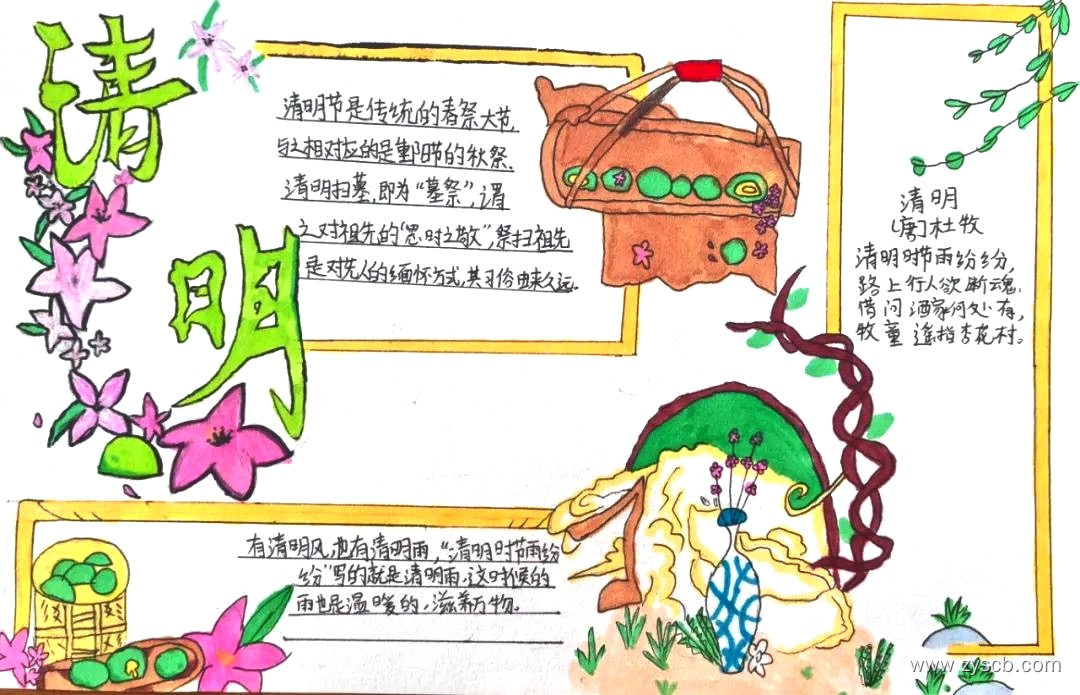 清
明
清明节是传统的春祭大节,
与之相对应的是重阳节的秋祭.
清明扫墓,即为“墓祭”,谓
之对祖先的“思时之敬”,祭扫祖先
是对先人的缅怀方式,其习俗由来久远。
清明
(唐)杜牧
清明时节雨纷纷,
路上行人欲断魂.
借问酒家何处有,
牧童遥指杏花村。
有清明风,也有清明雨,“清明时节雨纷
纷”写的就是清明雨.这时候的
雨也是温暖的,滋养万物.
www.zyscb.com